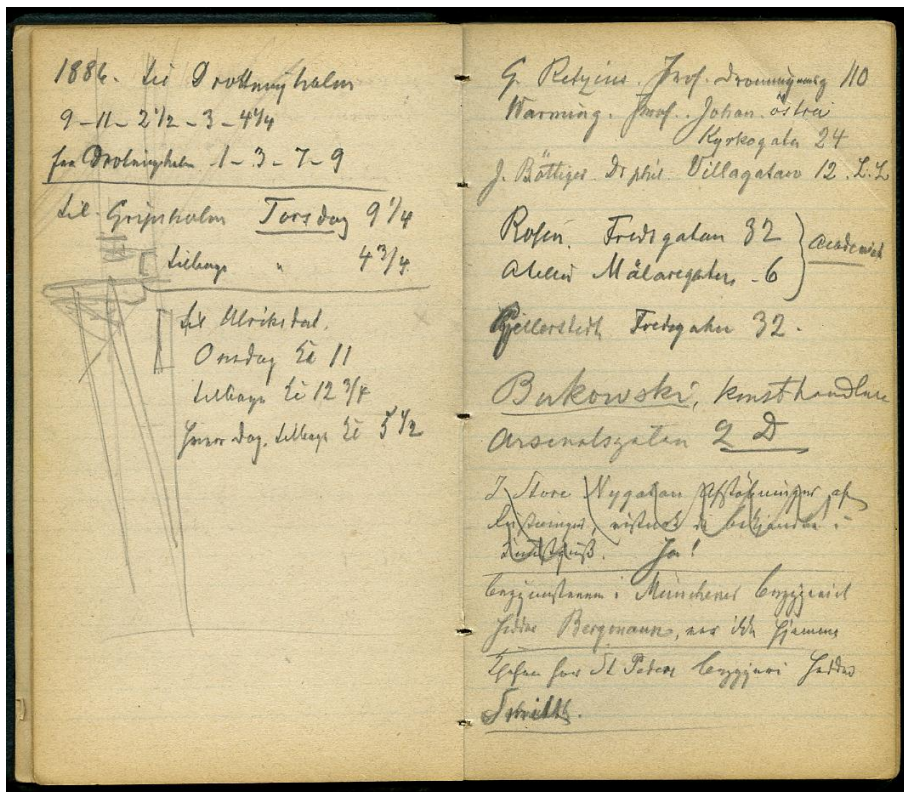 1886. til Drottningholm
9 - 11 - 2 1/2 - 3 - 4 1/4
fra Drotningholm 1 - 3 - 7 - 9
til Gripsholm Torsdag 9 1/4
tilbage " 4 3/4
til Ulriksdal.
Onsdag Kl 11
tilbage Kl 12 3/4
hver Dag. tilbage Kl 5 1/2
G. Retzius. Prof. Dronninggg 110
Warming. Prof. Johan. östra
Kyrkogatan 24
J. Böttiger Dr phil Villagatan 12. L.L
Rosen. Fredsgatan 32
Atelier Mälaregatan 6
Academiet
Kjellerstedt Fredsgatan 32.
Bukowski, Kunsthandler
Arsenalsgatan 2 D
I Store Nygatan Afstøbninger af
de bekjendte i
Ja!
i Münchener Bryggeriet
hedder Bergmann, var ikke hjemme
Chefen for St Peders Bryggeri hedder